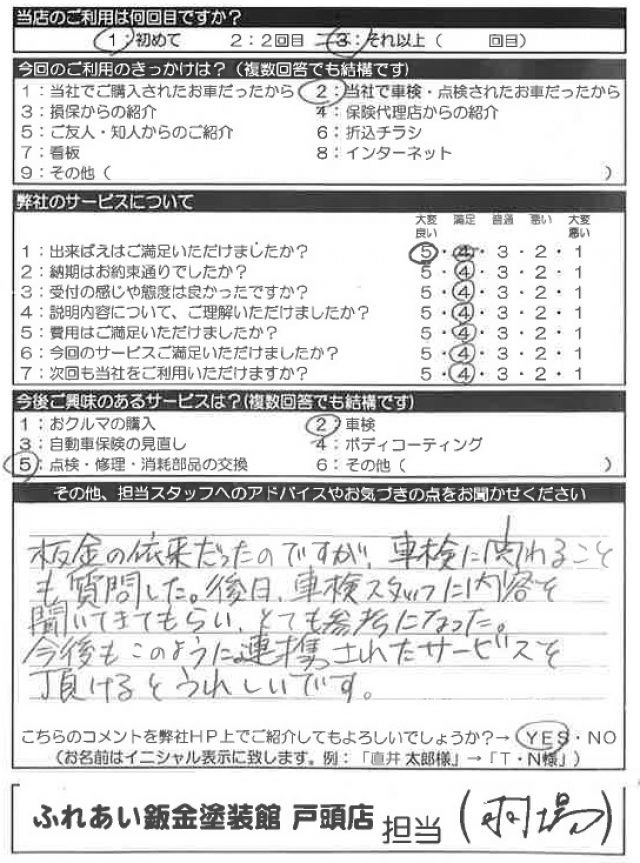 当店のご利用は何回目ですか?
1:初めて 2:2回目 3:それ以上( 回目)
今回のご利用のきっかけは?(複数回答でも結構です)
1:当社でご購入されたお車だったから 2:当社で車検・点検されたお車だったから
3:損保からの紹介 4:保険代理店からの紹介
5:ご友人・知人からのご紹介 6:折込チラシ
7:看板 8:インターネット
9:その他( )
弊社のサービスについて
大変良い 満足 普通 悪い 大変悪い
1:出来ばえはご満足いただけましたか? 5・4・3・2・1
2:納期はお約束通りでしたか? 5・4・3・2・1
3:受付の感じや態度は良かったですか? 5・4・3・2・1
4:説明内容について、ご理解いただけましたか? 5・4・3・2・1
5:費用はご満足いただけましたか? 5・4・3・2・1
6:今回のサービスご満足いただけましたか? 5・4・3・2・1
7:次回も当社をご利用いただけますか? 5・4・3・2・1
今後ご興味のあるサービスは?(複数回答でも結構です)
1:おクルマの購入 2:車検
3:自動車保険の見直し 4:ボディコーティング
5:点検・修理・消耗部品の交換 6:その他( )
その他、担当スタッフへのアドバイスやお気づきの点をお聞かせください
板金の依来だったのですが、車検に関わること
も質問した。後日、車検スタッフに内容を
聞いてきてもらい、とても参考になった。
今後もこのように連携されたサービスを
頂けるとうれしいです。
こちらのコメントを弊社HP上でご紹介してもよろしいでしょうか?→ YES・NO
(お名前はイニシャル表示に致します。例:「直井 太郎様」→「T・N様」)
ふれあい鈑金塗装館 戸頭店 担当(羽場)